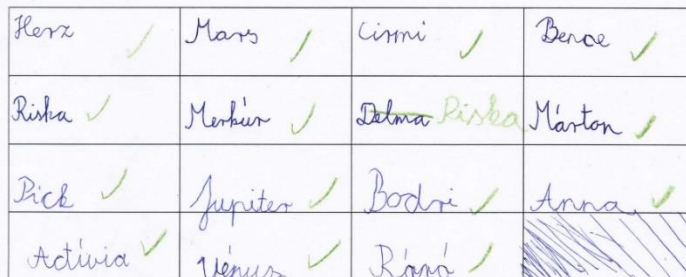 Herz Mars Cirmi Bence
Riska Merkúr Delma Riska Márton
Pick Jupiter Bodri Anna
Actívia Vénusz Ráró